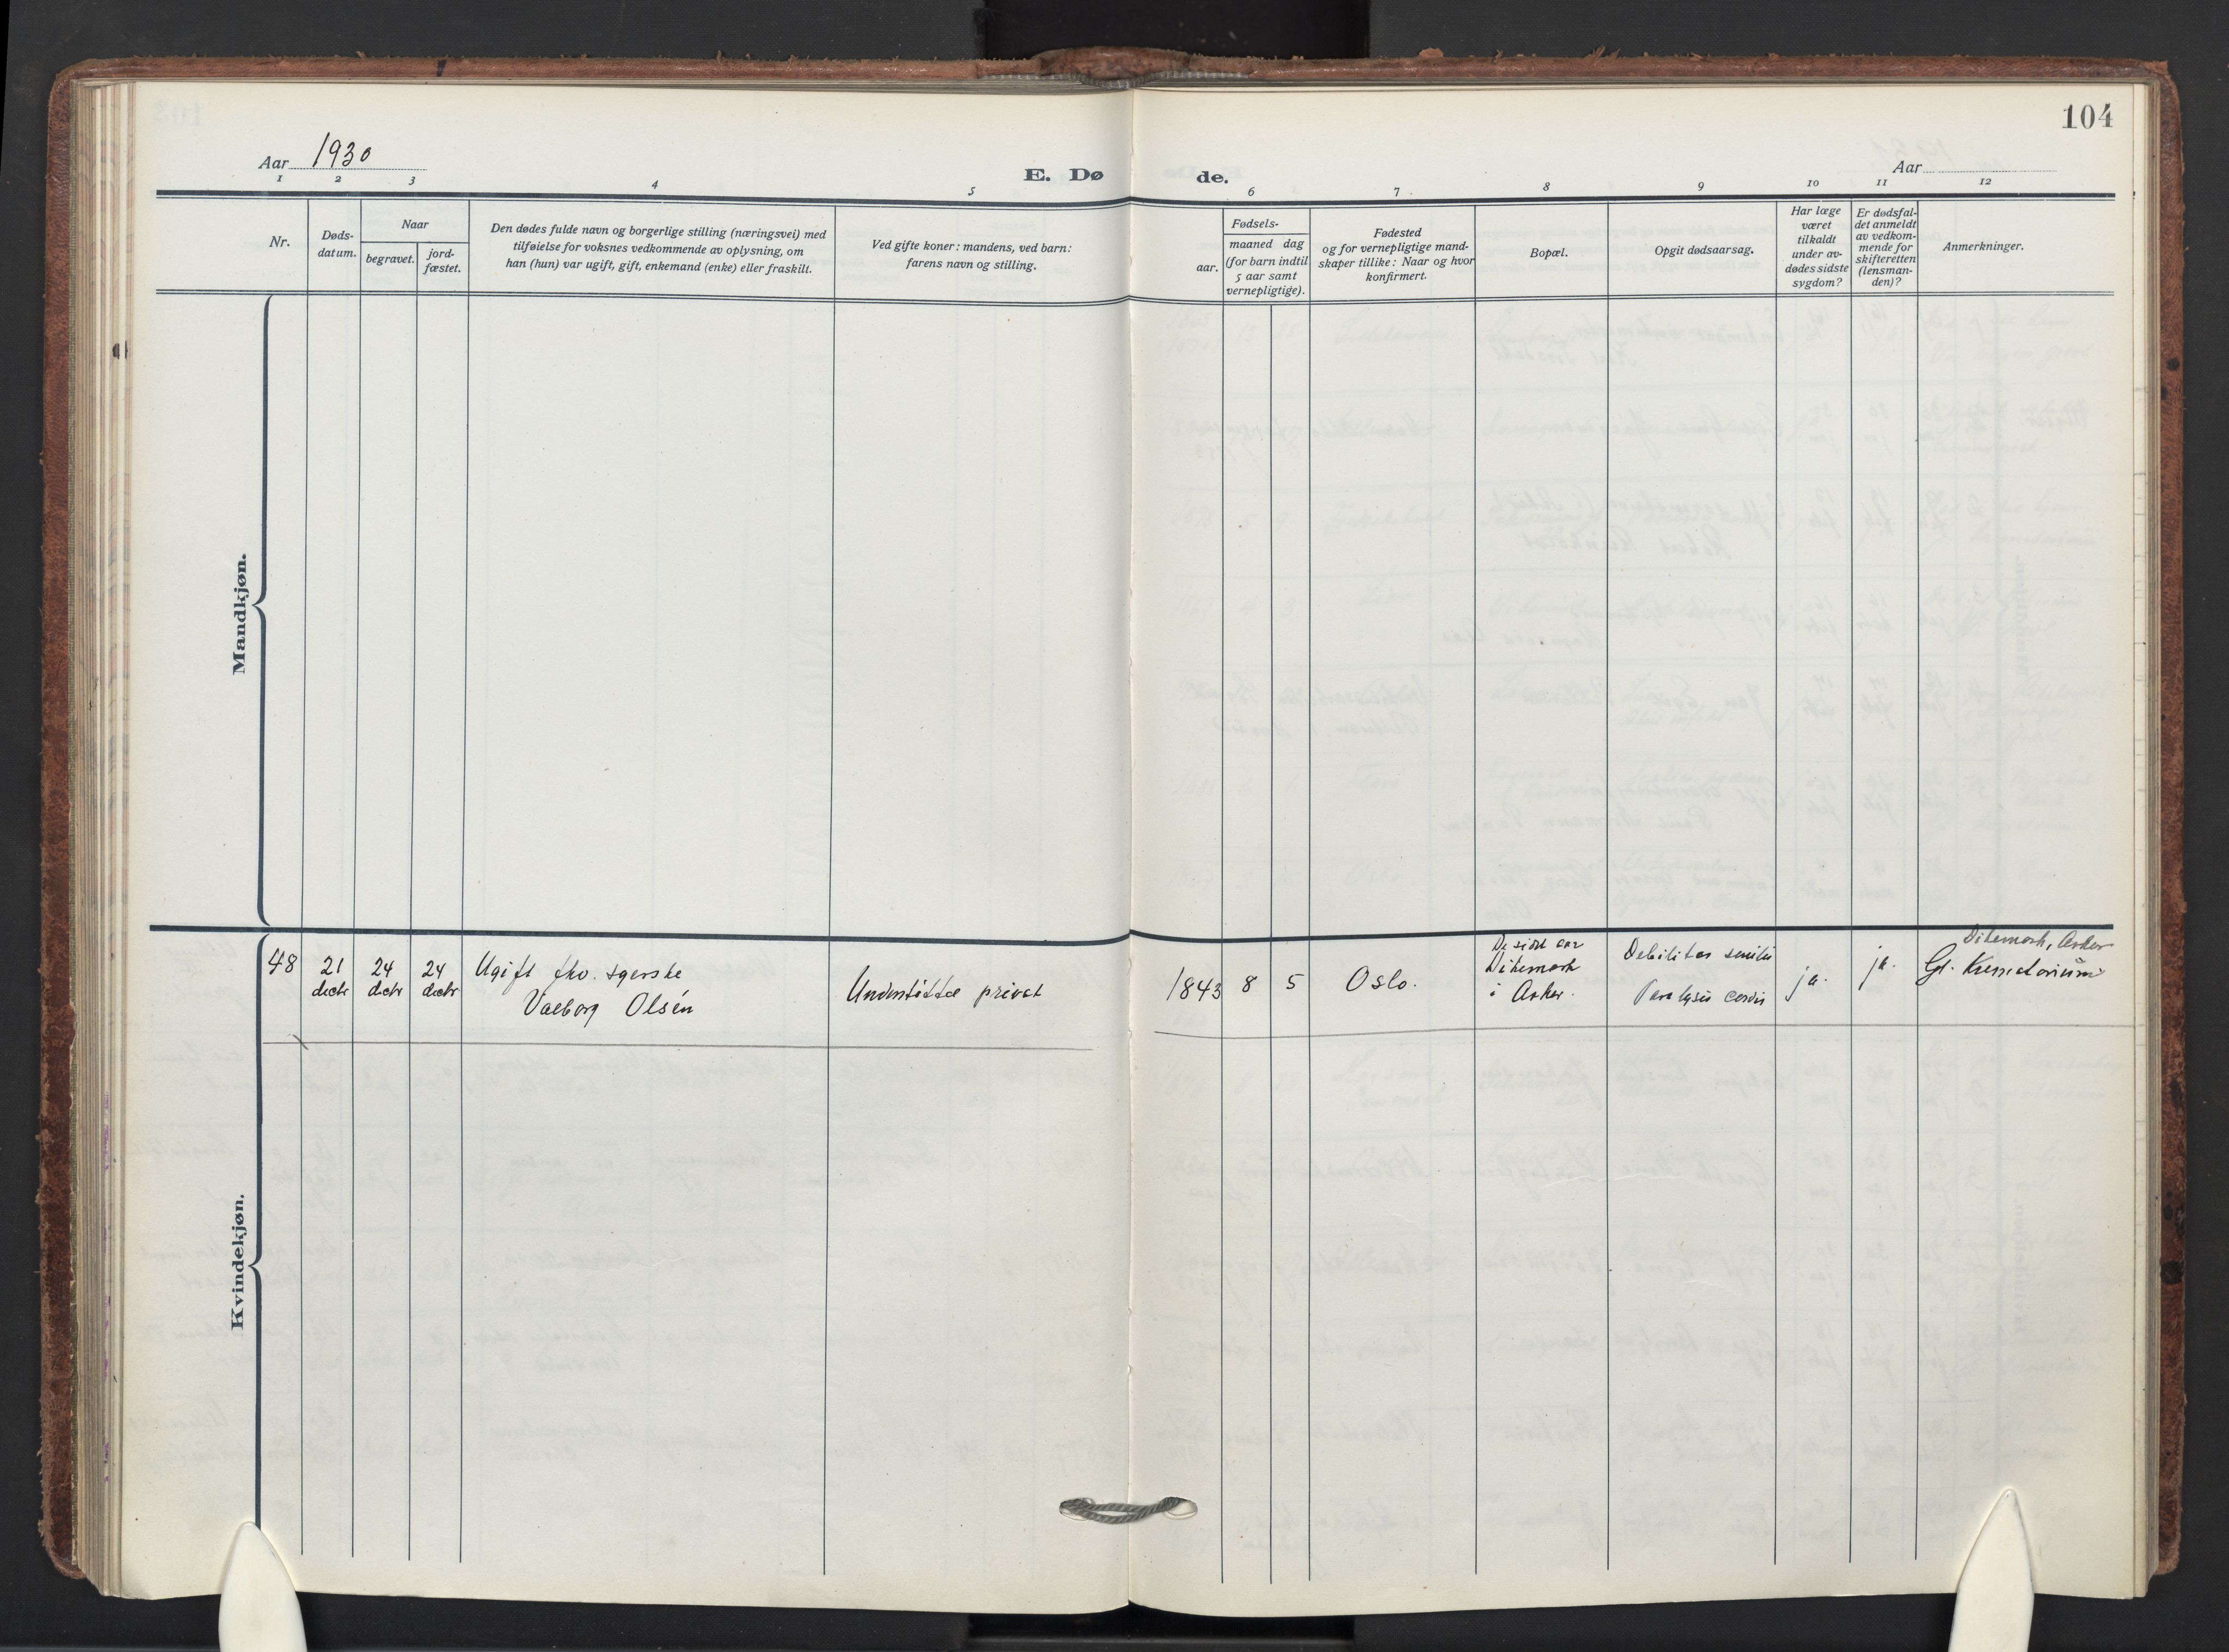 104
Aar 1930
E. Dø
de.
Aar
1 2 3 4 5 6 7 8 9 10 11 12
Nr.
Døds-
datum.
Naar
begravet.
jord-
fæstet.
Den dødes fulde navn og borgerlige stilling (næringsvei) med
tilføielse for voksnes vedkommende av oplysning, om
han (hun) var ugift, gift, enkemand (enke) eller fraskilt.
Ved gifte koner: mandens, ved barn:
farens navn og stilling.
Fødsels-
aar.
maaned dag
(for barn indtil
5 aar samt
vernepligtige).
Fødested
og for vernepligtige mand-
skaper tillike: Naar og hvor
konfirmert.
Bopæl.
Opgit dødsaarsag.
Har læge
været
tilkaldt
under av-
dødes sidste
sygdom?
Er dødsfal-
det anmeldt
av vedkom-
mende for
skifteretten
(lensman-
den)?
Anmerkninger.
Mandkjøn.
Kvindekjøn.
48
21
decbr
24
decbr
24
decbr
Ugift fhv. syerske
Valborg Olsén
Understøttet privat
1843
8
5
Oslo.
De sidst aar
Dikemark
i Asker.
Debilitas senilis
Paralysis cordis
ja.
ja.
Dikemark, Asker
Gl. Krematorium